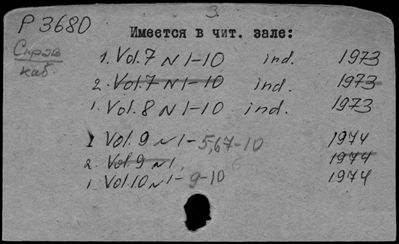 3.
Р 3680
Справ
каб.
Имеется в чит. зале:
1. Vol. 7 N 1-10 ind. 1973
2. Vol. 7 N 1-10 ind. 1973
1. Vol. 8 N 1-10 ind. 1973
1 Vol. 9 N 1-5,67-10 1974
2. Vol. 9 N 1 1974
1. Vol. 10 N 1-9-10 1974